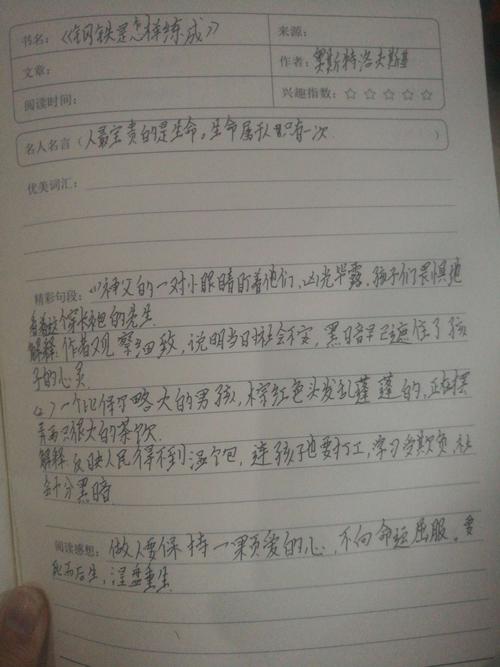 书名：《钢铁是怎样练成》
来源：
文章：
作者：奥斯特洛夫斯基
阅读时间：
兴趣指数：☆☆☆☆☆
名人名言（人最宝贵的是生命。生命属于人只有一次）
优美词汇：
精彩句段：(1)神父的一对小眼睛盯着他们，凶光毕露，孩子们畏惧地
看着这个穿长袍的先生
解释：作者观察细致，说明当日社会不安，黑暗早已遮住了孩
子的心灵
(2)一个比保尔略大的男孩，棕红色头发乱蓬蓬的，正在摆
弄两只很大的茶炊
解释：反映人民得不到温饱，连孩子也要打工，学习
会十分黑暗
阅读感想：做人要保持一颗爱的心，不向命运屈服。要
死而后生，涅盘重生